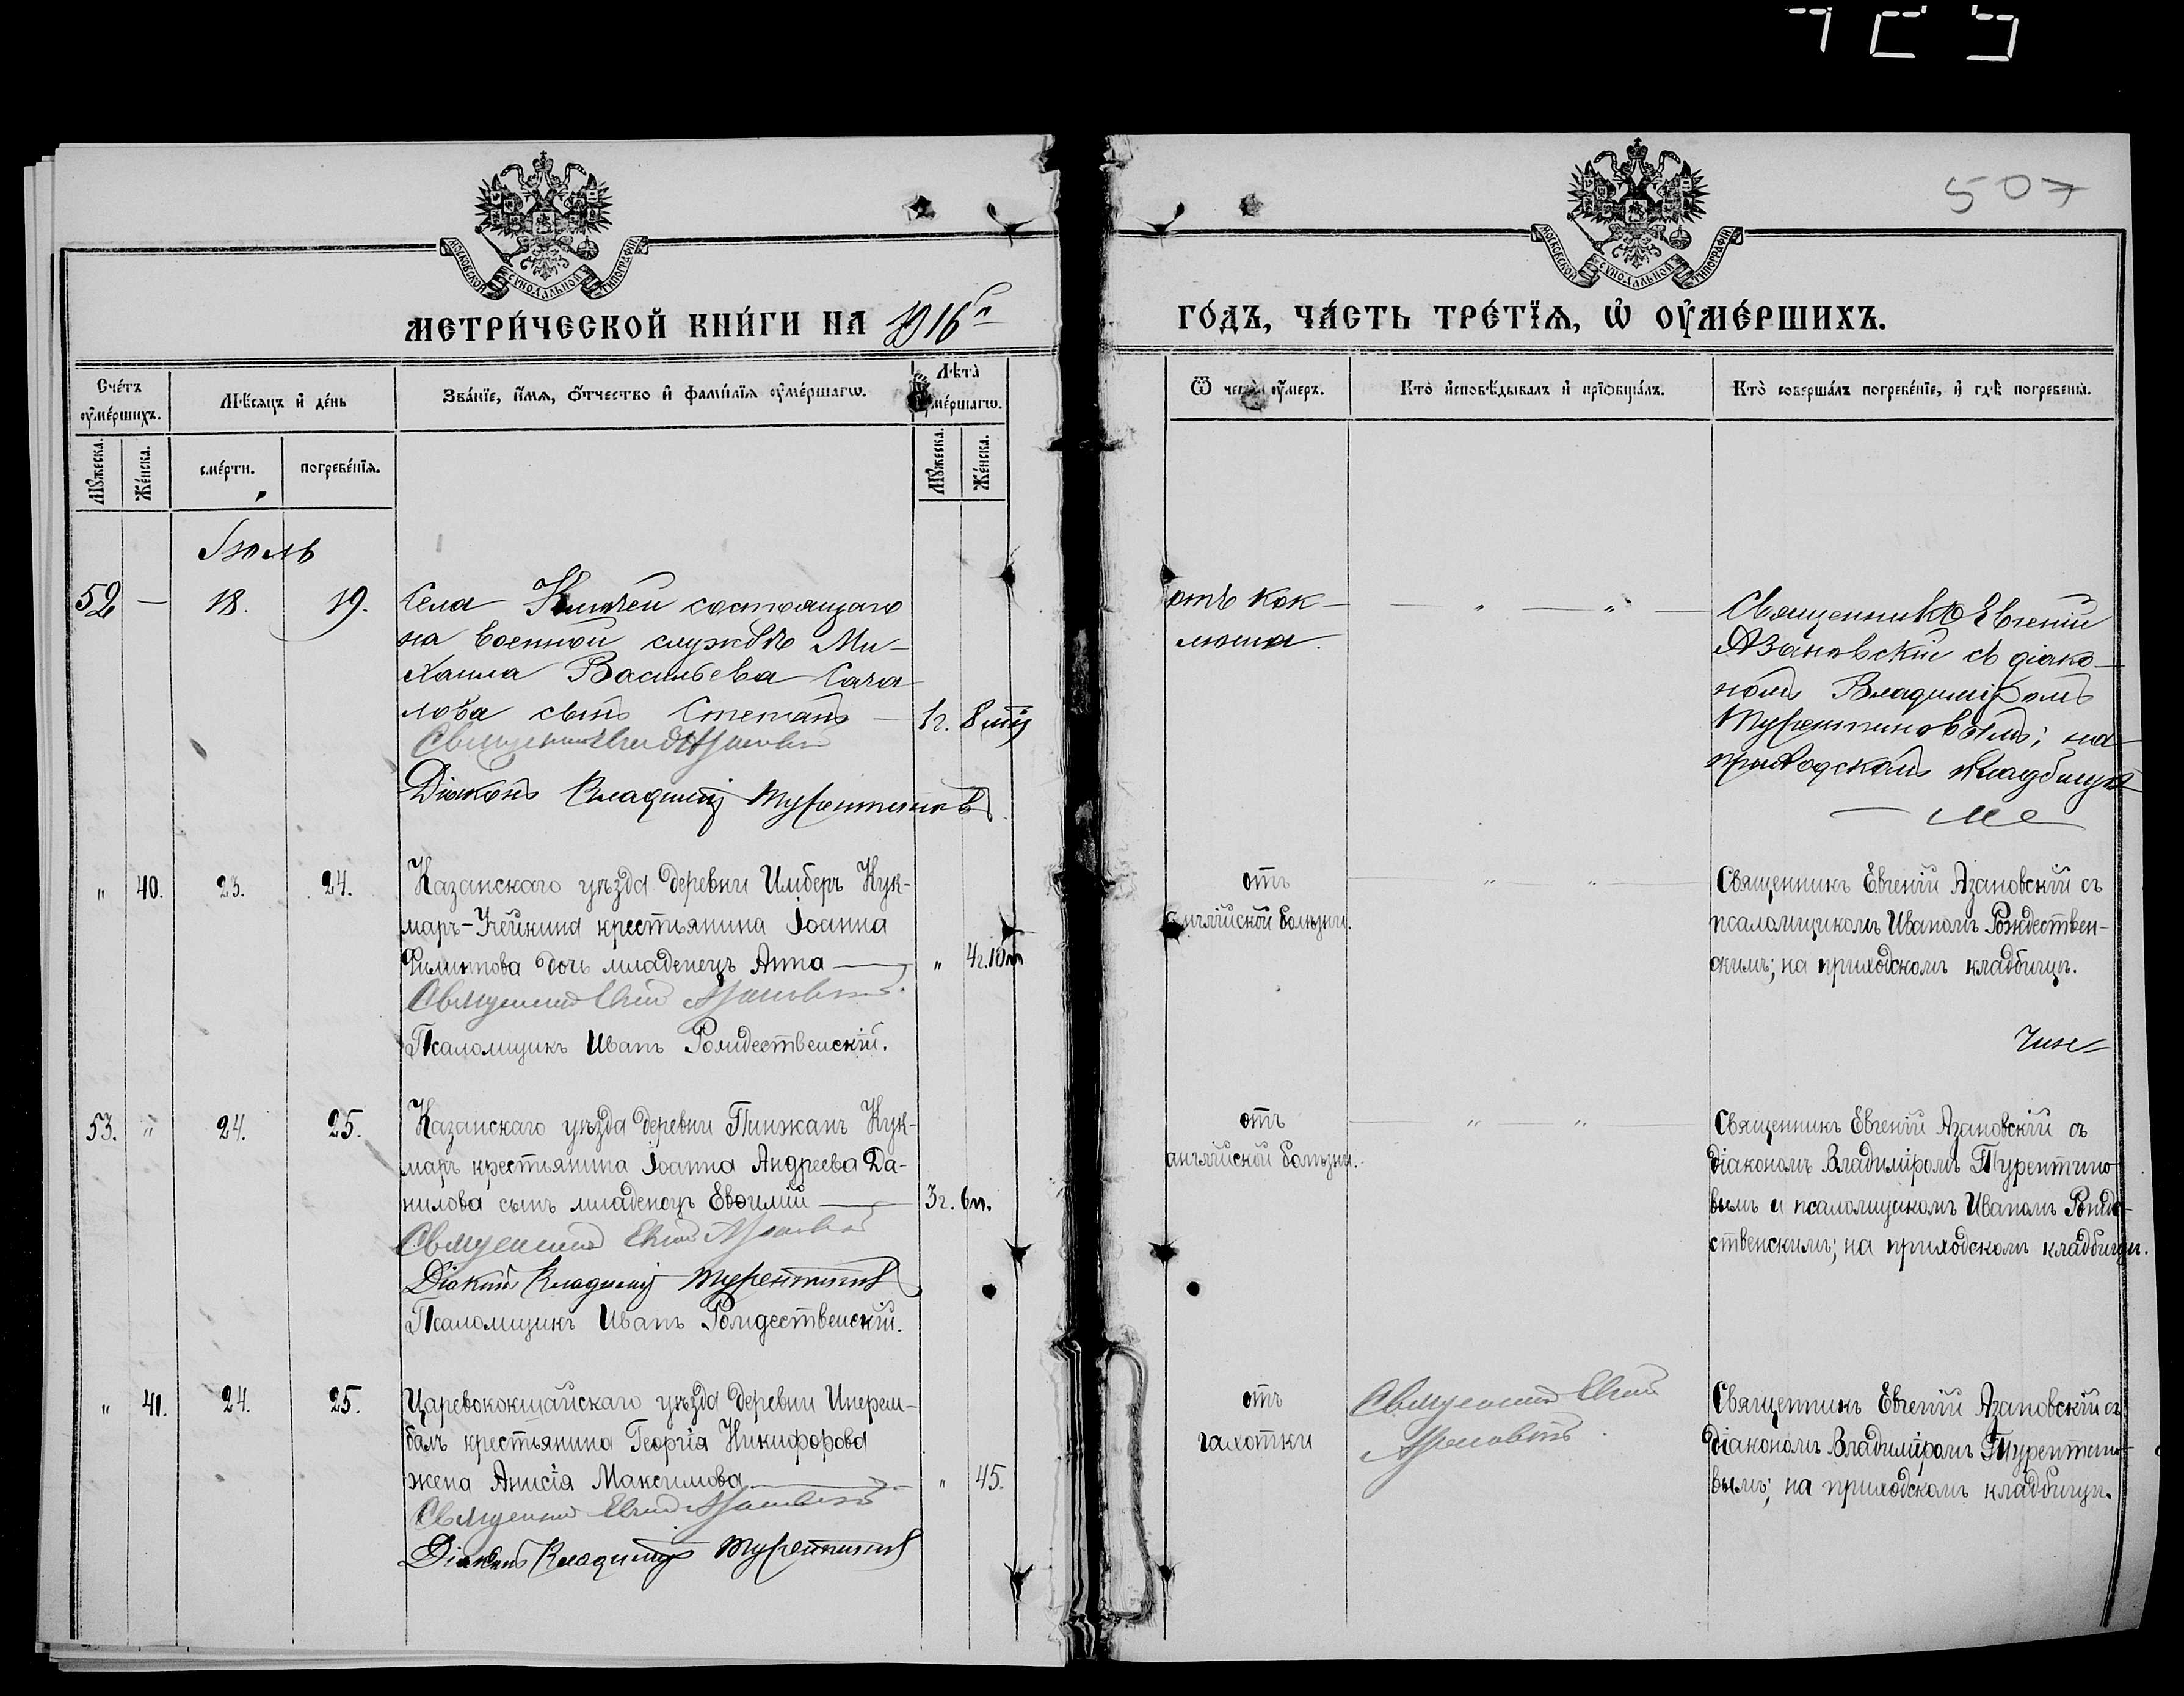 507
МОСКОВСКОЙ СѴНОДАЛЬНОЙ ТИПОГРАФІИ
МОСКОВСКОЙ СѴНОДАЛЬНОЙ ТИПОГРАФІИ
МЕТРИ́ЧЕСКОЙ КНИ́ГИ НА 1916й ГО́ДЪ, ЧА́СТЬ ТРЕ́ТЇѦ, Ѡ҆ ОУ҆МЕ́РШИХЪ.
Сче́тъ оу҆ме́ршихъ.
Мꙋ́жеска.
Же́нска.
Мѣ́сѧцъ и҆ де́нь
сме́рти.
погребе́нїѧ.
Зва́нїе, и҆́мѧ, ѻ҆́тчество и҆ фамѝлїѧ оу҆ме́ршагѡ.
Лѣ́та оу҆ме́ршагѡ.
Мꙋ́жеска.
Же́нска.
Ѿ чегѡ̀ оу҆́меръ.
Кто̀ и҆сповѣ́дывалъ и҆ прїѡбща́лъ.
Кто̀ соверша́лъ погребе́нїе, и҆ гдѣ̀ погребены̀.
Іюль
52 — 18. 19.
Села состоящаго
на военной службѣ Ми-
хаила Васильева Сача-
лова сынъ Степанъ —
1г. 8 мѣ
Діаконъ Владиміръ Турентиновъ
отъ кок-
люша.
— " — " —
Священникъ Евгеній
Азановскій съ діако-
номъ Владиміромъ
Турентиновымъ; на
приходскомъ кладбищѣ
" 40. 23. 24.
Казанскаго уѣзда деревни Имберъ Кук-
маръ-Учейкина крестьянина Іоанна
Филиппова дочь младенецъ Анна —
" 4г.10м
Псаломщикъ Иванъ Рождественскій.
отъ
англійской болѣзни.
" "
Священникъ Евгеній Азановскій съ
псаломщикомъ Иваномъ Рождествен-
скимъ; на приходскомъ кладбищѣ.
53. " 24. 25.
Казанскаго уѣзда деревни Пинжанъ Кук-
маръ крестьянина Іоанна Андреева Да-
нилова сынъ младенецъ Евѳимій —
3г. 6м.
Діаконъ Владиміръ Турентиновъ
Псаломщикъ Иванъ Рождественскій.
отъ
англійской болѣзни.
" "
Священникъ Евгеній Азановскій съ
діакономъ Владиміромъ Турентино-
вымъ и псаломщикомъ Иваномъ Рожде-
ственскимъ; на приходскомъ кладбищѣ.
" 41. 24. 25.
Царевококшайскаго уѣзда деревни Инерем-
балъ крестьянина Георгія Никифорова
жена Анисія Максимова. —
" 45.
Діаконъ Владиміръ Турентиновъ
отъ
чахотки
Священникъ Евгеній
Азановскій
Священникъ Евгеній Азановскій съ
діакономъ Владиміромъ Турентино-
вымъ; на приходскомъ кладбищѣ.